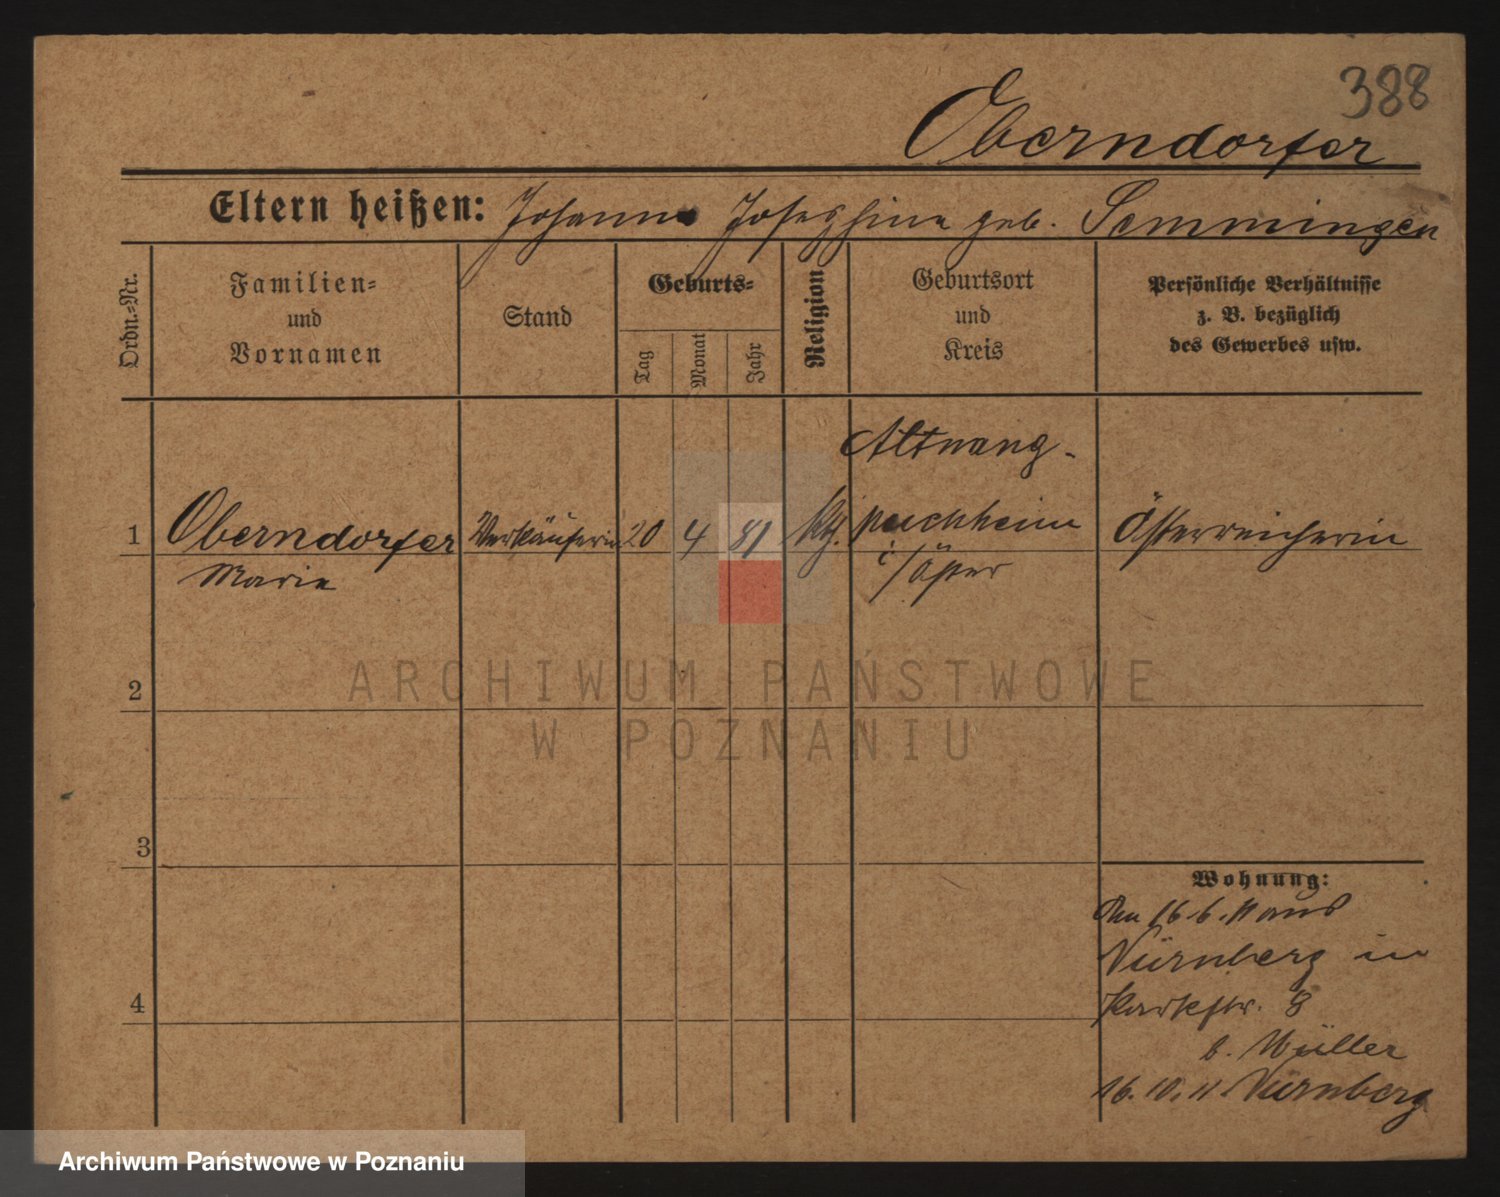 388
Oberndorfer
Eltern heißen: Johann Josephine geb. Semmingen
Ordn.-Nr.
Familien-
und
Vornamen
Stand
Geburts-
Tag
Monat
Jahr
Religion
Geburtsort
und
Kreis
Persönliche Verhältnisse
z. B. bezüglich
des Gewerbes usw.
Altwang-
1 Oberndorfer Verkäuferin 20 4 81 Kth. puchheim Österreicherin
Marie i/Öster
2
ARCHIWUM PAŃSTWOWE
W POZNANIU
3
Wohnung:
16.6.11 aus
Nürnberg in
4
Parkstr. 8
b. Müller
16.10.11 Nürnberg
Archiwum Państwowe w Poznaniu